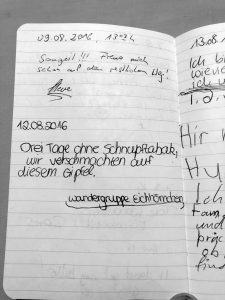 09.08.2016 13:34
Saugeil!!! Freue mich
schon auf den restlichen Weg!
12.08.2016
Drei Tage ohne Schnupftabak,
wir verschmachten auf
diesem Gipfel.
wandergruppe Eichhörnchen
13.08
Ich b
wievie
ich u
1, 2,
Hir
Hu
Ich
und
ob